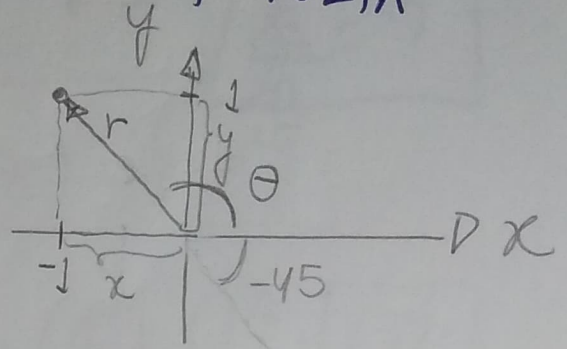 y
1
r
y
θ
x
-1
x
-45